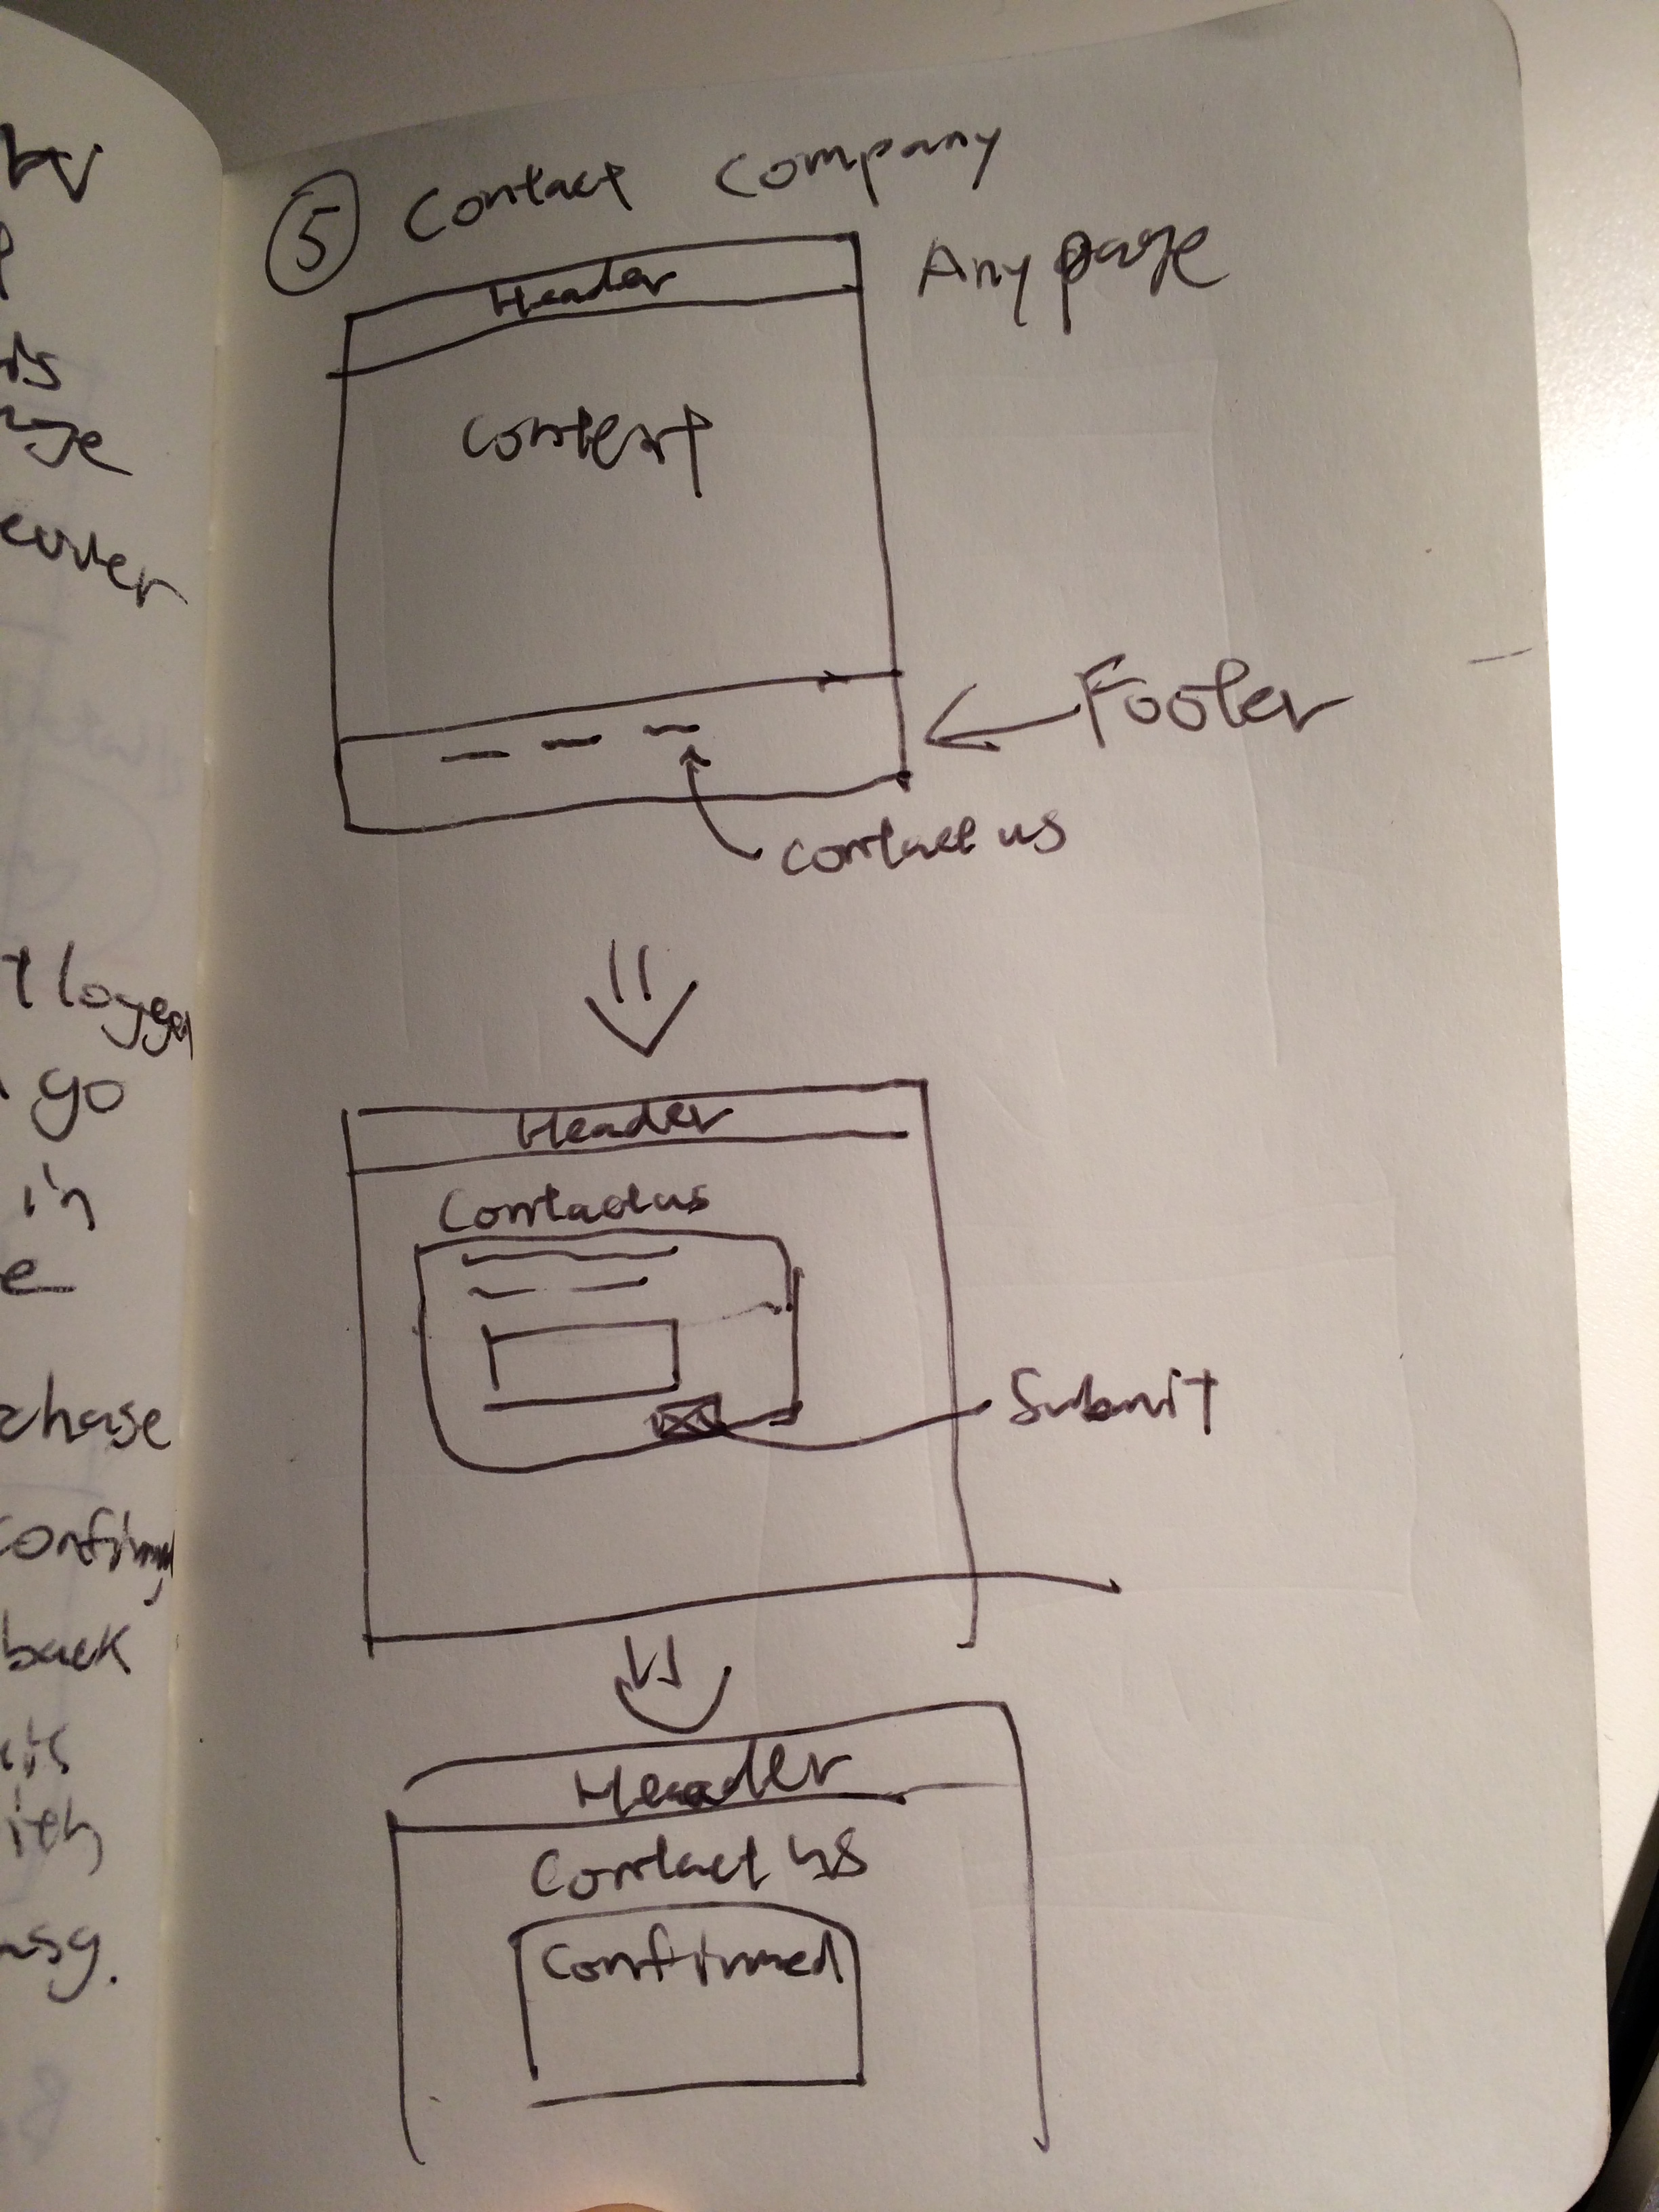 by
ds
cover
t logged
go
in
e
chase
confirm
back
ith
msg.
5 Contact Company
Any page
Header
Content
Footer
contact us
Header
Contact us
Submit
Header
Contact us
Confirmed